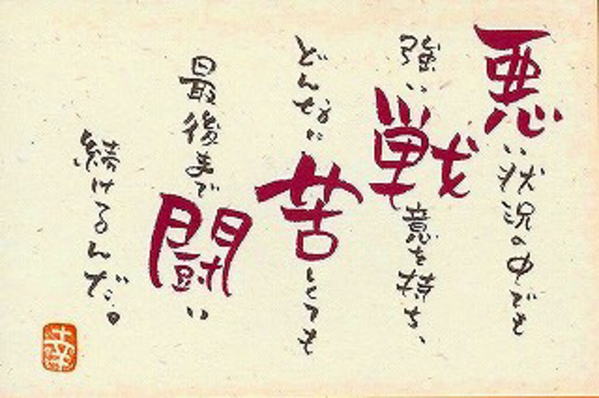 悪い状況の中でも
強い戦意を持ち、
どんなに苦しくても
最後まで闘い
続けるんだ。
幸